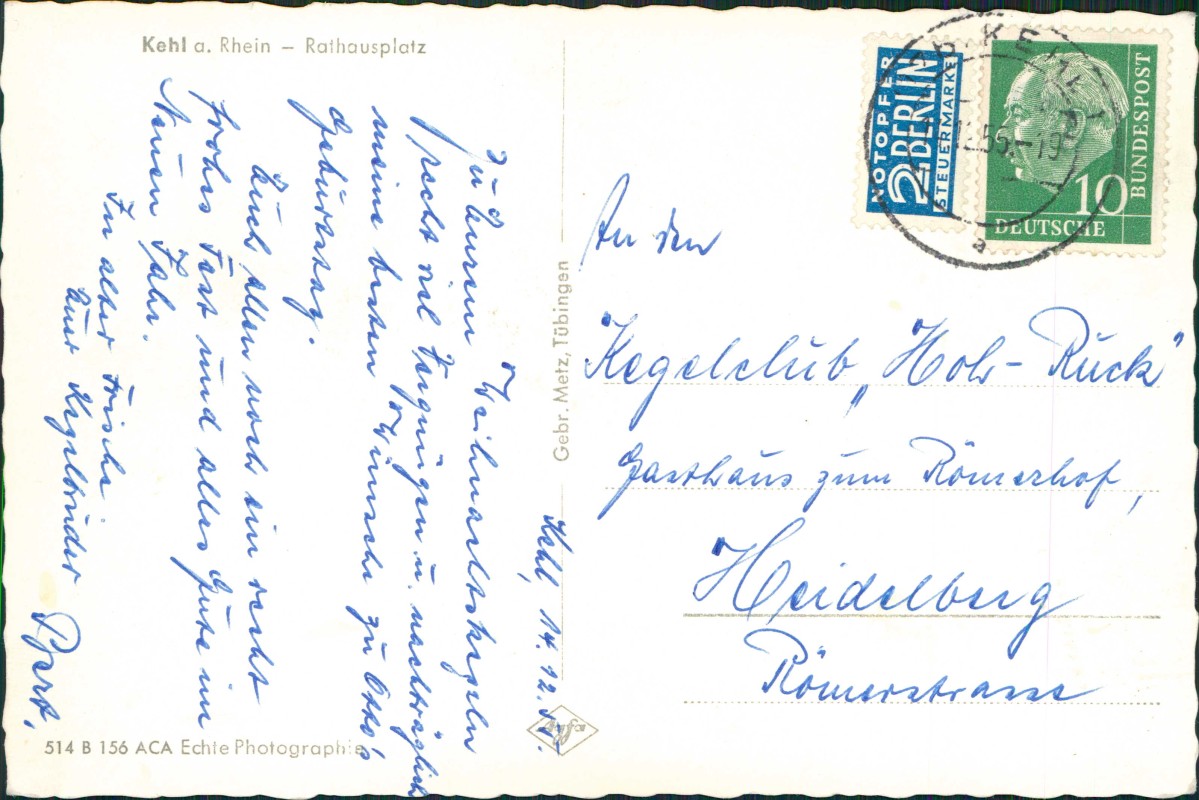 Kehl a. Rhein – Rathausplatz
Kehl, 14.12.
Zu Eurem Weihnachtskegeln
recht viel Vergnügen u. nachträglich
meine besten Wünsche zu Otto's
Geburtstag.
Euch allen noch ein recht
frohes Fest und alles Gute im
Neuen Jahr.
In alter Frische
Euer Kegelbruder
514 B 156 ACA Echte Photographie
Gebr. Metz, Tübingen
NOTOPFER
2 BERLIN
STEUERMARKE
10
DEUTSCHE
BUNDESPOST
An den
Kegelclub „Holz-Ruck"
Gasthaus zum Römerhof,
Heidelberg
Römerstrasse